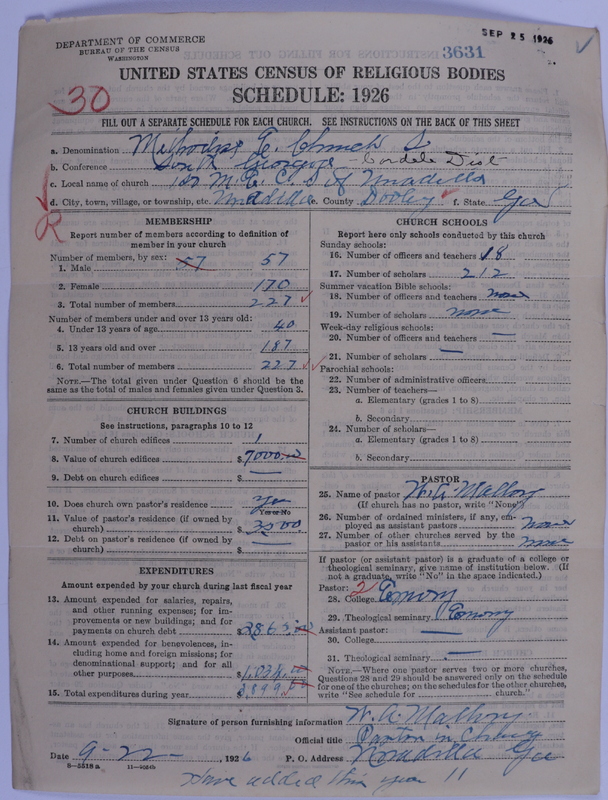 SEP 25 1926
DEPARTMENT OF COMMERCE
BUREAU OF THE CENSUS
WASHINGTON
3631
UNITED STATES CENSUS OF RELIGIOUS BODIES
30
SCHEDULE: 1926
FILL OUT A SEPARATE SCHEDULE FOR EACH CHURCH. SEE INSTRUCTIONS ON THE BACK OF THIS SHEET
a. Denomination Methodist E. Church S
b. Conference South Georgia - Cordele Dist
c. Local name of church 1st M. E. C. S of Unadilla
d. City, town, village, or township, etc. Unadilla e. County Dooly f. State Ga
MEMBERSHIP
Report number of members according to definition of
member in your church
Number of members, by sex:
1. Male 57 57
2. Female 170
3. Total number of members 227
Number of members under and over 13 years old:
4. Under 13 years of age 40
5. 13 years old and over 187
6. Total number of members 227
NOTE.—The total given under Question 6 should be the
same as the total of males and females given under Question 3.
CHURCH BUILDINGS
See instructions, paragraphs 10 to 12
7. Number of church edifices 1
8. Value of church edifices $ 7000.00
9. Debt on church edifices $ —
10. Does church own pastor's residence yes
Yes or No
11. Value of pastor's residence (if owned by
church) $ 3500
12. Debt on pastor's residence (if owned by
church) $ —
EXPENDITURES
Amount expended by your church during last fiscal year
13. Amount expended for salaries, repairs,
and other running expenses; for im-
provements or new buildings; and for
payments on church debt $ 2865.00
14. Amount expended for benevolences, in-
cluding home and foreign missions; for
denominational support; and for all
other purposes $ 1,034.00
15. Total expenditures during year $ 3,899.00
CHURCH SCHOOLS
Report here only schools conducted by this church
Sunday schools:
16. Number of officers and teachers 18
17. Number of scholars 212
Summer vacation Bible schools:
18. Number of officers and teachers none
19. Number of scholars none
Week-day religious schools:
20. Number of officers and teachers —
21. Number of scholars —
Parochial schools:
22. Number of administrative officers
23. Number of teachers—
a. Elementary (grades 1 to 8)
b. Secondary
24. Number of scholars—
a. Elementary (grades 1 to 8)
b. Secondary
PASTOR
25. Name of pastor W. A. Mallory
(If church has no pastor, write "None")
26. Number of ordained ministers, if any, em-
ployed as assistant pastors none
27. Number of other churches served by the
pastor or his assistants none
If pastor (or assistant pastor) is a graduate of a college or
theological seminary, give name of institution below. (If
not a graduate, write "No" in the space indicated.)
Pastor: 2
28. College Emory
29. Theological seminary Emory
Assistant pastor: —
30. College
31. Theological seminary —
NOTE.—Where one pastor serves two or more churches,
Questions 28 and 29 should be answered only on the schedule
for one of the churches; on the schedules for the other churches,
write "See schedule for church."
Signature of person furnishing information W. A. Mallory
Official title Pastor in Charge
Date 9-22-, 1926 P. O. Address Unadilla Ga
8—5518 a 11—9054b
Have added this year 11